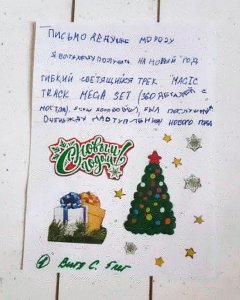 ПИСЬМО ДЕДУШКЕ МОРОЗУ
Я ХОЧУ ПОЛУЧИТЬ НА НОВЫЙ ГОД
ГИБКИЙ СВЕТЯЩИЙСЯ ТРЕК MAGIC
TRACK MEGA SET (360 ДЕТАЛЕЙ С
МОСТОМ). Я БЫЛ ПОСЛУШНЫМ
ОЧЕНЬ ЖДУ НАСТУПЛЕНИЯ НОВОГО ГОДА
С Новым
годом!
Витя С. 5 лет